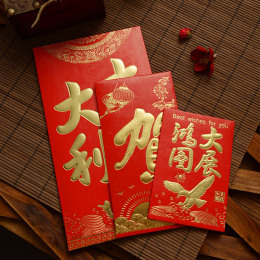 大
大利
賀
Best wishes for you
大展
鴻圖